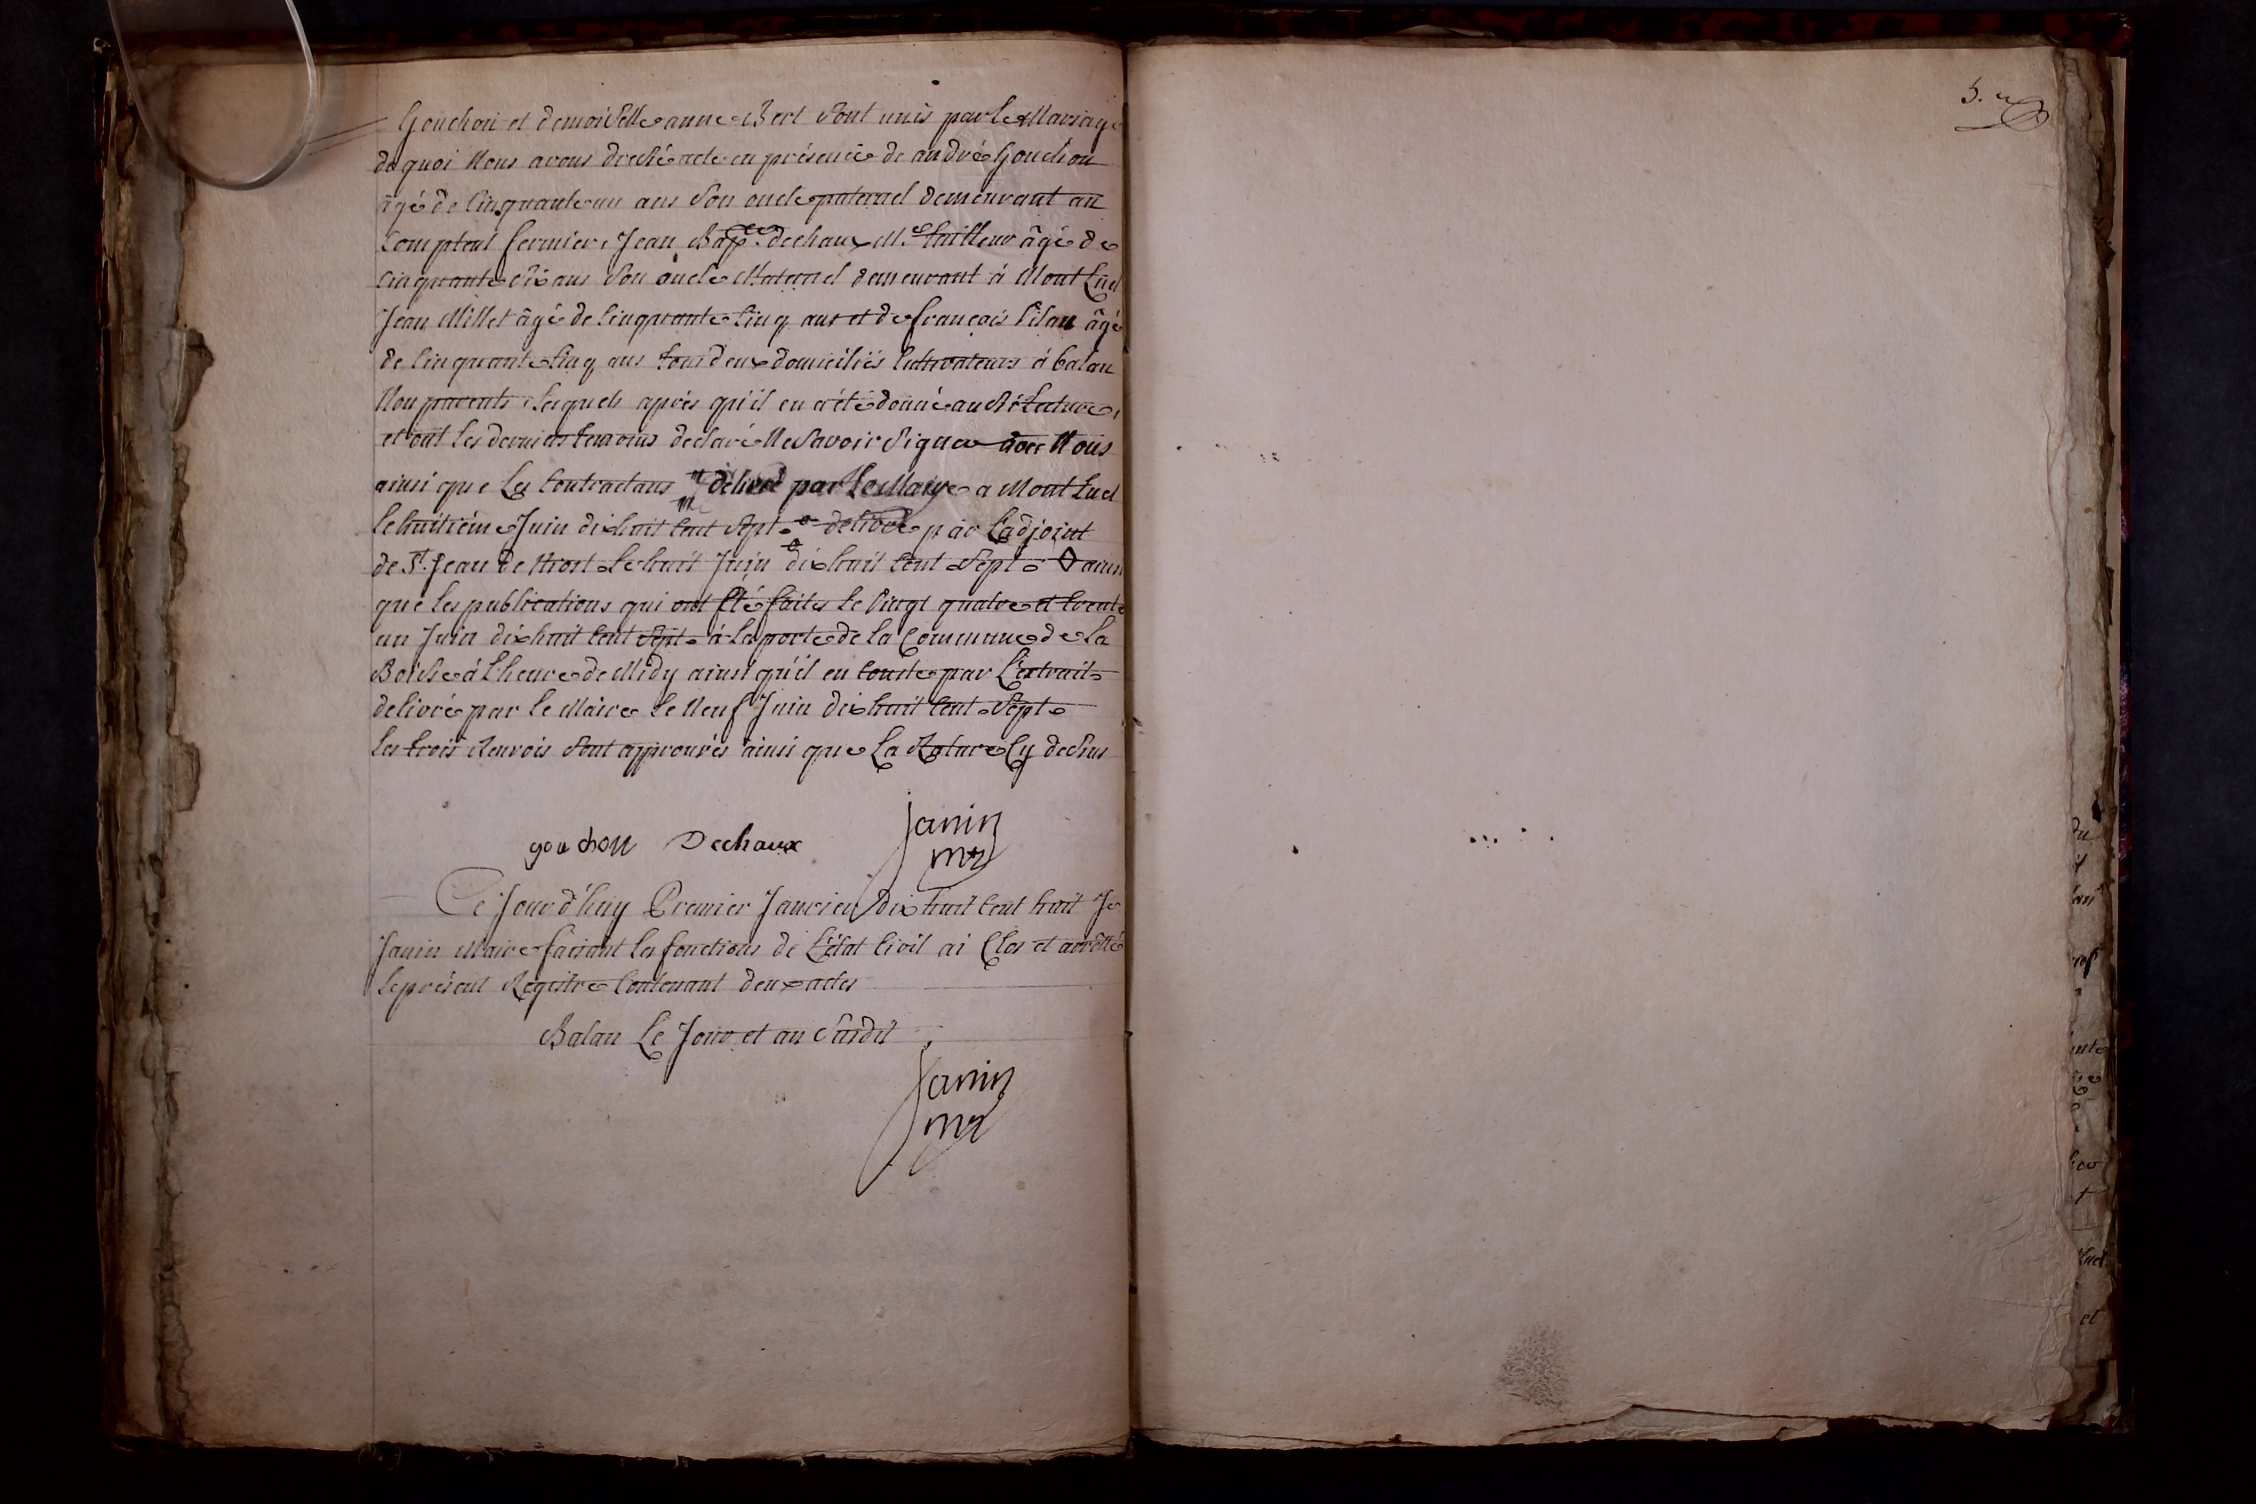 Gouchon et demoiselle anne Bert sont unis par le Mariage
de quoi Nous avons dressé acte en présence de andré Gouchon
âgé de Cinquante un ans son oncle paternel demeurant au
Comptent fermier, Jean Bap.te dechaux M.e tailleur âgé de
Cinquante six ans son oncle Maternel demeurant à Mont Luel
Jean Millet âgé de Cinquante Cinq ans et de françois Pilan âgé
de Cinquante Cinq ans tous deux domiciliés Cultivateurs à balan
Non parents, lesquels après qu'il en a été donné aussi Lecture,
et ont les derniers temoins declaré Ne Savoir Signer avec Nous
ainsi que Les Contractans délivré par Le Maire a Mont Luel
le huitième Juin dix huit Cent Sept délivré par L'adjoint
de St. Jean de Niost le huit Juin dix huit Cent Sept ainsi
que les publications qui ont Eté faites le Vingt quatre et trente
un Juin dix huit Cent Sept à la porte de la Commune de La
Boisse à L'heure de Midy ainsi qu'il en Conste par L'extrait
delivré par le Maire le Neuf Juin dix huit Cent Sept
Les trois Renvois sont approuvés ainsi que La Rature Cy dessus
gouchon Dechaux Janin
mr
Ce Jourd'huy Premier Janvier dix huit Cent huit Je
Janin Maire faisant les fonctions de L'état Civil ai Clos et arrêtté
le présent Registre Contenant deux actes
Balan Le Jour et an Susdit
Janin
mr